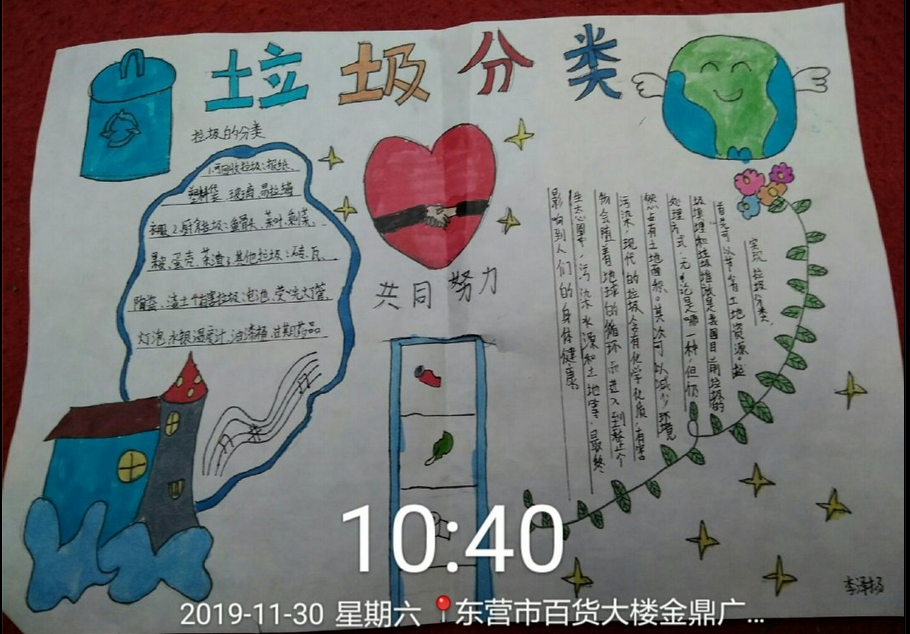 垃圾分类
垃圾的分类
1.可回收垃圾:报纸、
塑料袋、玻璃、易拉罐
2.厨余垃圾:鱼骨、茶叶、剩菜、
果核、蛋壳、茶渣3其他垃圾:砖、瓦、
陶瓷、渣土 有害垃圾:电池、荧光灯管、
灯泡、水银温度计、油漆桶、过期药品
共同努力
实现垃圾分类,
首先可以节省土地资源。垃
圾填埋和垃圾堆放是我国目前垃圾的
处理方式,无论是哪一种,但仍
候占有土地面积。其次可以减少环境
污染,现代的垃圾含有化学化质,有害
物会随着地球的循环而进入到整个
生态圈中,污染水源和土地等,最终
影响到人们的身体健康。
李泽杨
10:40
2019-11-30 星期六 东营市百货大楼金鼎广...